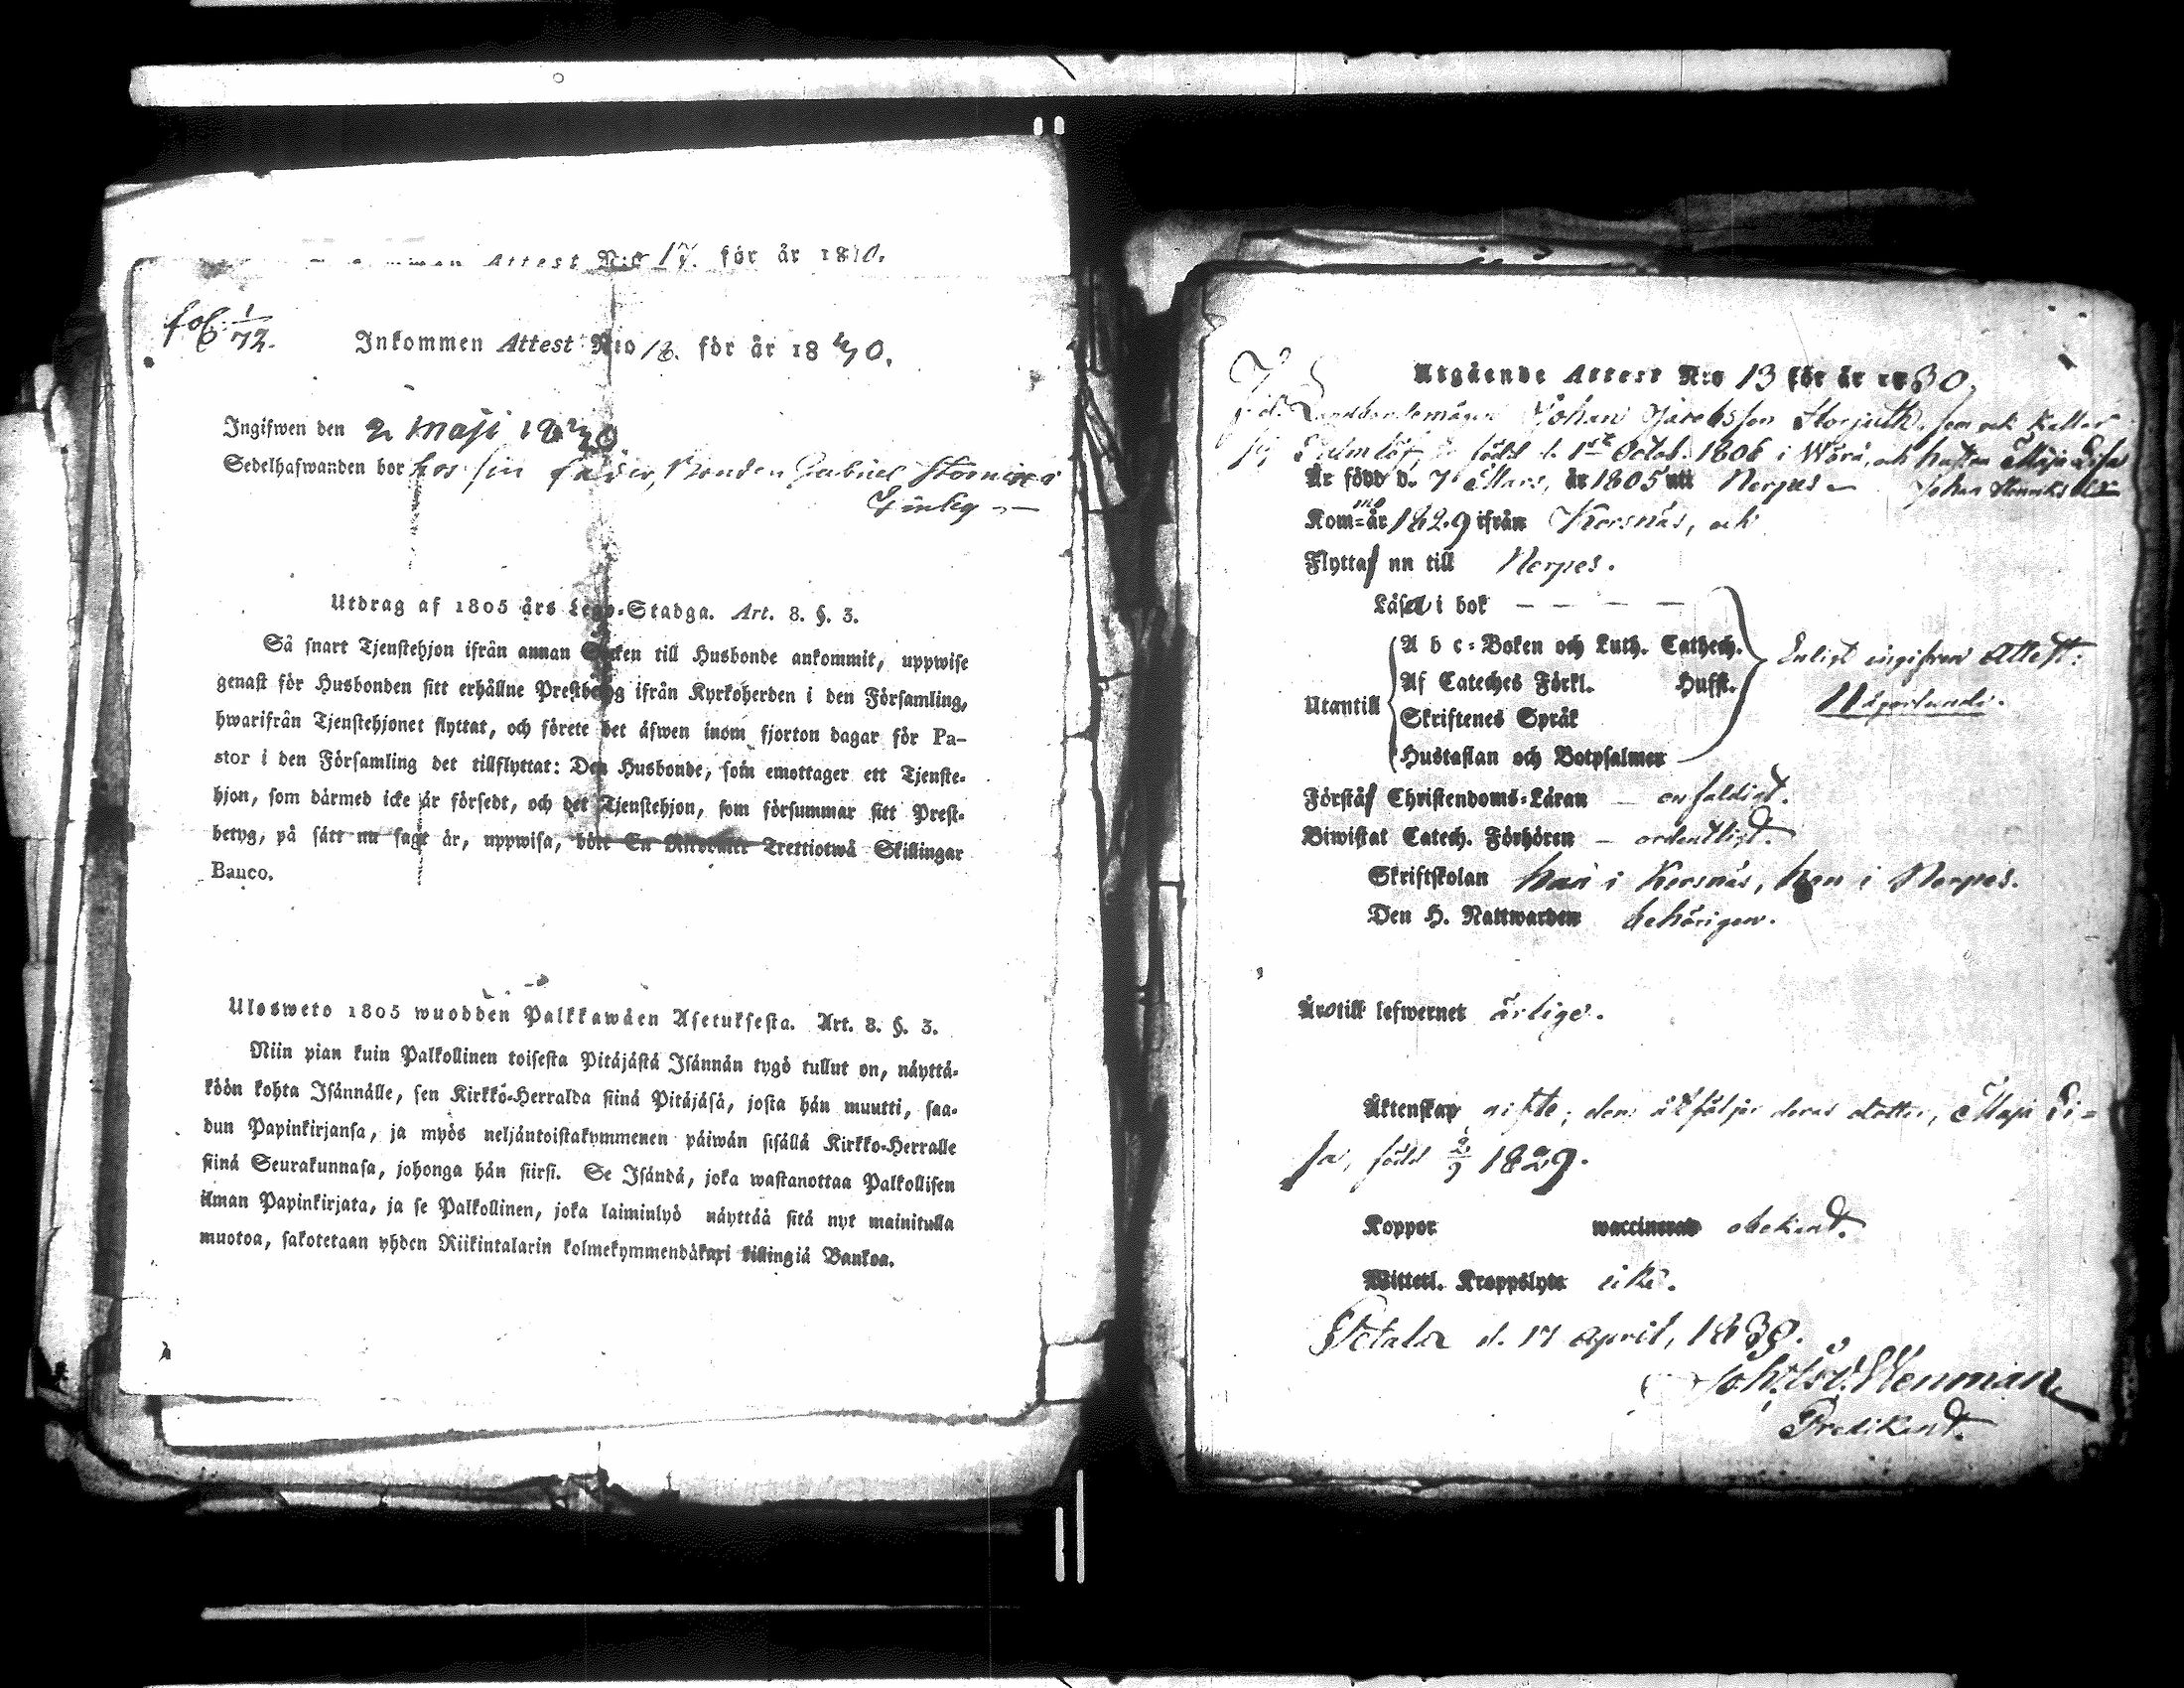 Attest N:o 17. för år 1830.
fol. 1/72.
Inkommen Attest N:o 18. för år 1830.
Ingifwen den 2 Maji 1830
Sedelhafwanden bor hos sin fader, Bonden Gabriel
Utdrag af 1805 års Lego-Stadga. Art. 8. §. 3.
Så snart Tjenstehjon ifrån annan Socken till Husbonde ankommit, uppwise
genast för Husbonden sitt erhållne Prestbetyg ifrån Kyrkoherden i den Församling,
hwarifrån Tjenstehjonet flyttat, och förete det äfwen inom fjorton dagar för Pa-
stor i den Församling det tillflyttat: Den Husbonde, som emottager ett Tjenste-
hjon, som därmed icke är försedt, och det Tjenstehjon, som försummar sitt Prest-
betyg, på sätt nu sagt är, uppwisa, böte En Riksdaler Trettiotwå Skillingar
Banco.
Ulosweto 1805 wuodden Palkkawäen Asetuksesta. Art. 8. §. 3.
Niin pian kuin Palkollinen toisesta Pitäjästä Isännän tygö tullut on, näyttä-
köön kohta Isännälle, sen Kirkko-Herralda siinä Pitäjäsä, josta hän muutti, saa-
dun Papinkirjansa, ja myös neljäntoistakymmenen päiwän sisällä Kirkko-Herralle
siinä Seurakunnasa, johonga hän siirsi. Se Isändä, joka wastanottaa Palkollisen
ilman Papinkirjata, ja se Palkollinen, joka laiminlyö näyttää sitä nyt mainitulla
muotoa, sakotetaan yhden Riikintalarin kolmekymmendäkaxi killingiä Bankoa.
Utgående Attest N:o 13 för år 1830,
Johan Jacobsson Storgulh, som ock kallar
sig född d. 1st Octob. 1806 i Wörå, och hustru Maja Lisa
Är född d. 7 Mars, år 1805 uti Nerpes – Johans Henriksdr
Kom-mo år 1829 ifrån Korsnäs, och
Flytta nu till Nerpes.
Läsa i bok – – – –
Utantill
A b c-Boken och Luth. Cathech.
Af Cateches Förkl. Hussk.
Skriftenes Språk
Hustaflan och Botpsalmer
Enligt ingifven Attest:
Någorlunda.
Förstå Christendoms-Läran – enfaldigt.
Biwistat Catech. Förhören – ordentligt.
Skriftskolan han i Korsnäs, hon i Nerpes.
Den H. Nattwarden behörigen.
Äro till lefwernet ärlige.
Äktenskap gifte; dem åtföljer deras dotter, Maja Li-
sa, född 2/9 1829.
Koppor waccinerad obekant.
Witterl. Kroppslyte icke.
Petalax d. 17 April, 1830.
Wenman
Predikant.